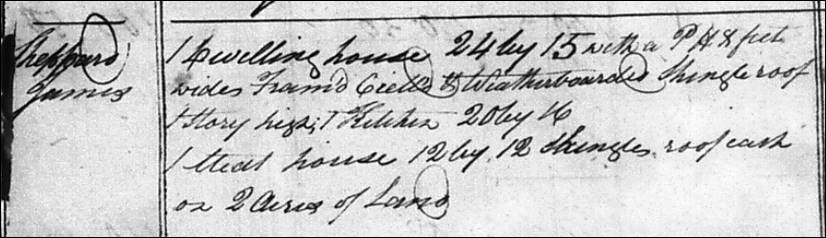 Sheppard
James
1 dwelling house 24 by 15 with a P H 8 feet
wides Fram'd Cield & Weatherboarded Shingle roof
1 Story high; 1 Kitchen 20 by 16
1 Meat house 12 by 12 Shingles roof each
on 2 Acres of Land